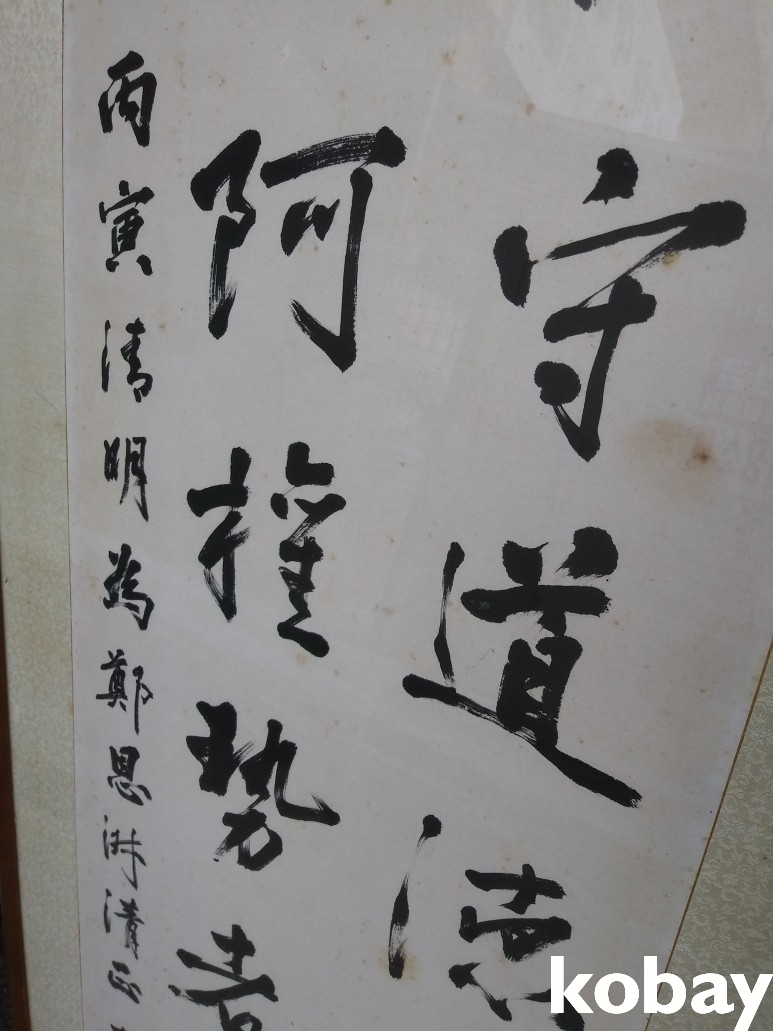 守道德
阿權勢者
丙寅清明爲鄭恩洙清正
kobay